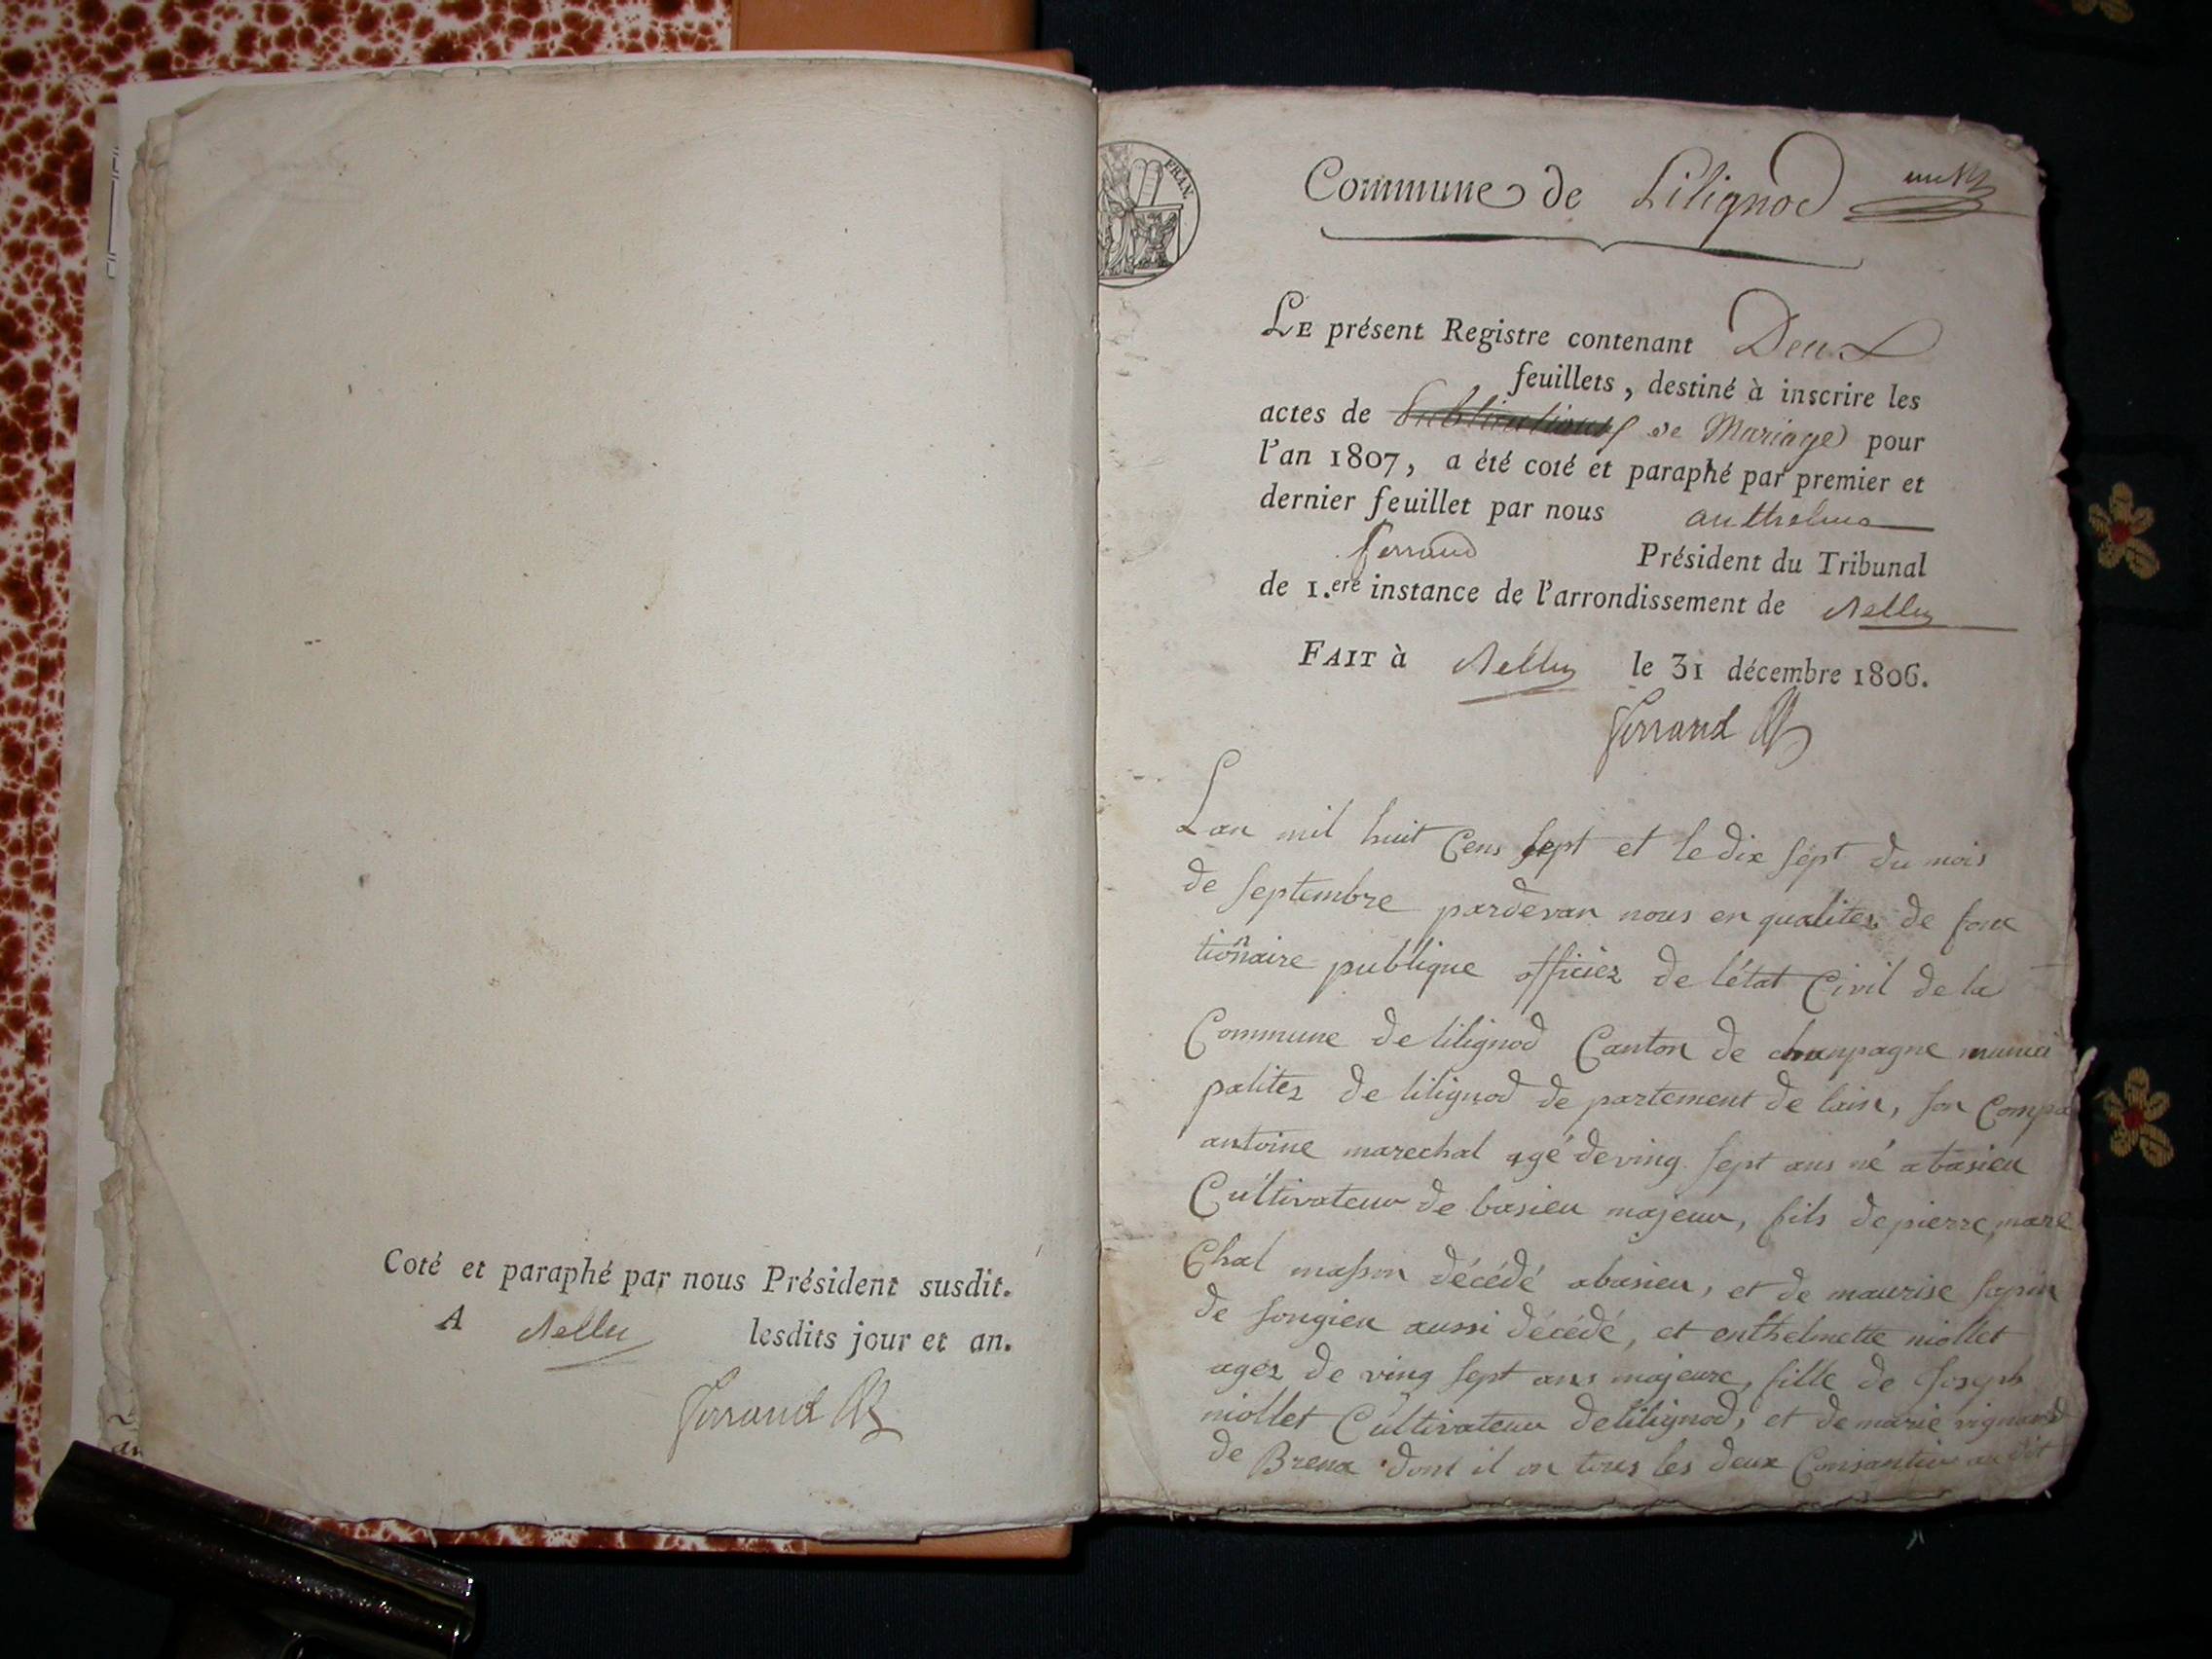 Coté et paraphé par nous Président susdit.
A Bellei lesdits jour et an.
Ferrand
FRAN.
Commune de Lilignod
LE présent Registre contenant Deux
feuillets, destiné à inscrire les
actes de publications de Mariage pour
l'an 1807, a été coté et paraphé par premier et
dernier feuillet par nous anthelme
ferrand Président du Tribunal
de 1.ere instance de l'arrondissement de Belley
FAIT à Belley le 31 décembre 1806.
Ferrand
Lan mil huit Cens sept et le dix sept du mois
de septembre pardevan nous en qualitez de fonc
tionnaire publique officiez de létat Civil de la
Commune de lilignod Canton de champagne munici
palitez de lilignod de partement de lain, son Compa
antoine marechal agé de ving sept ans né a basieu
Cultivateur de basieu majeur, fils de pierre mare
Chal masson décédé a basieu, et de maurise sapin
de songieu aussi décédé, et enthelmette niollet
agez de ving sept ans majeure, fille de Joseph
niollet Cultivateur de lilignod, et de marie vignand
de Brena dont il on tous les deux Consantiu au dit